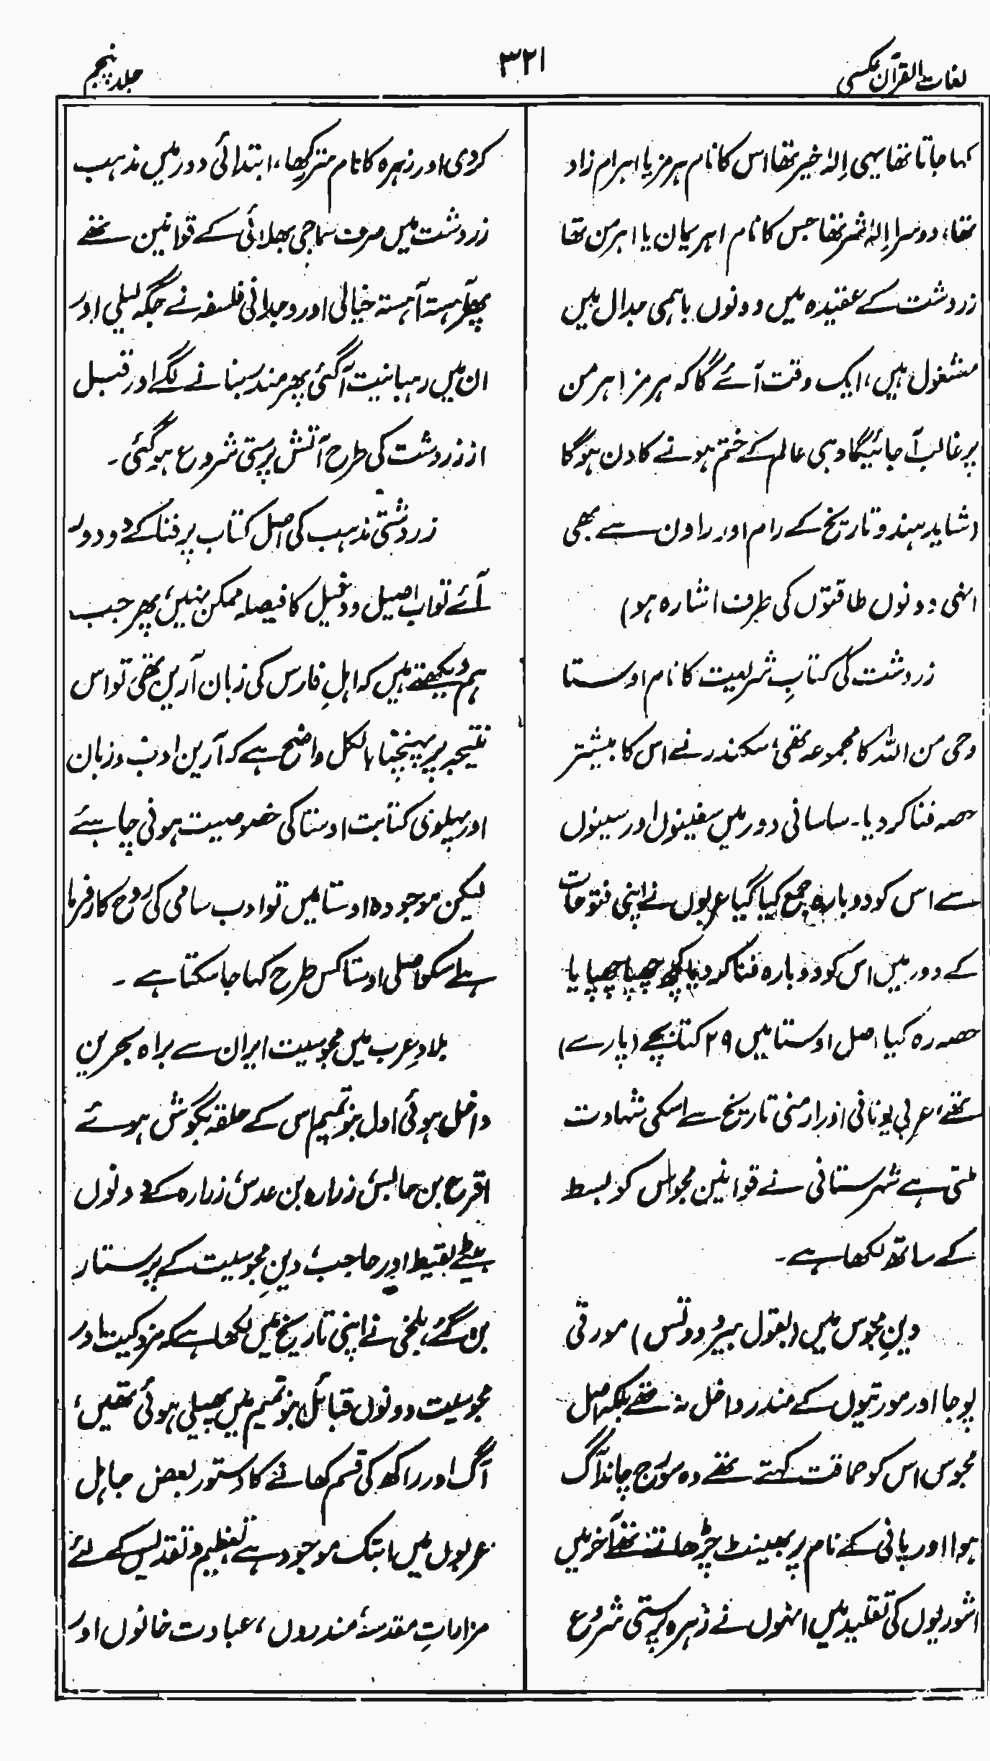 لغات القرآن عکسی
۳۲۱
جلد پنجم
کہا جاتا تھا یہی اِلٰہ خیر تھا اس کا نام ہرمز یا اہرام زاد
تھا، دوسرا اِلٰہ شر تھا جس کا نام اہریمان یا اہرمن تھا
زردشت کے عقیدہ میں دونوں باہمی جدال میں
مشغول ہیں، ایک وقت آئے گا کہ ہرمز اہرمن
پر غالب آجائیگا وہی عالم کے ختم ہونے کا دن ہوگا
(شاید ہندو تاریخ کے رام اور راون سے بھی
انہی دونوں طاقتوں کی طرف اشارہ ہو)
زردشت کی کتابِ شریعت کا نام اوستا
وحی من اللہ کا مجموعہ تھی، سکندر نے اس کا بیشتر
حصہ فنا کر دیا۔ ساسانی دور میں سفینوں اور سینوں
سے اس کو دوبارہ جمع کیا گیا عربوں نے اپنی فتوحات
کے دور میں اس کو دوبارہ فنا کر دیا کچھ چھپا چھپایا
حصہ رہ گیا اصل اوستا میں ۲۹ کتابچے (پارے)
تھے، عربی یونانی اور ارمنی تاریخ سے اسکی شہادت
ملتی ہے شہرستانی نے قوانین مجوس کو بسط
کے ساتھ لکھا ہے۔
دینِ مجوس میں (بقول ہیرودوتس) مورتی
پوجا اور مورتیوں کے مندر داخل نہ تھے بلکہ اصل
مجوس اس کو حماقت کہتے تھے وہ سورج چاند آگ
ہوا اور پانی کے نام پر بھینٹ چڑھاتے تھے آخر میں
اشوریوں کی تقلید میں انہوں نے زہرہ پرستی شروع
کر دی اور زہرہ کا نام متر رکھا، ابتدائی دور میں مذہب
زردشت میں صرف سماجی بھلائی کے قوانین تھے
پھر آہستہ آہستہ خیالی اور وجدانی فلسفہ نے جگہ لیلی اور
ان میں رہبانیت آگئی پھر مندر بنانے لگے اور قبل
از زردشت کی طرح آتش پرستی شروع ہوگئی۔
زردشتی مذہب کی اصل کتاب پر فنا کے دو دور
آئے تو اب اصیل و دخیل کا فیصلہ ممکن نہیں، پھر جب
ہم دیکھتے ہیں کہ اہلِ فارس کی زبان آرین تھی تو اس
نتیجہ پر پہنچنا بالکل واضح ہے کہ آرین ادب و زبان
اور پہلوی کتابت اوستا کی خصوصیت ہونی چاہئے
لیکن موجودہ اوستا میں تو ادب سامی کی روح کارفرما
ہے اسکو اصلی اوستا کس طرح کہا جا سکتا ہے ۔
بلادِ عرب میں مجوسیت ایران سے براہ بحرین
داخل ہوئی اول بنو تمیم اس کے حلقہ بگوش ہوئے
اقرع بن حابس، زرارہ بن عدس، زرارہ کے دونوں
بیٹے لقیط اور حاجب، دینِ مجوسیت کے پرستار
بن گئے، بلخی نے اپنی تاریخ میں لکھا ہے کہ مزدکیت اور
مجوسیت دونوں قبائل بنو تمیم میں پھیلی ہوئی تھیں،
آگ اور راکھ کی قسم کھانے کا دستور بعض جاہل
عربوں میں ابتک موجود ہے تعظیم و تقدیس کے لئے
مزاراتِ مقدسہ، مندروں، عبادت خانوں اور